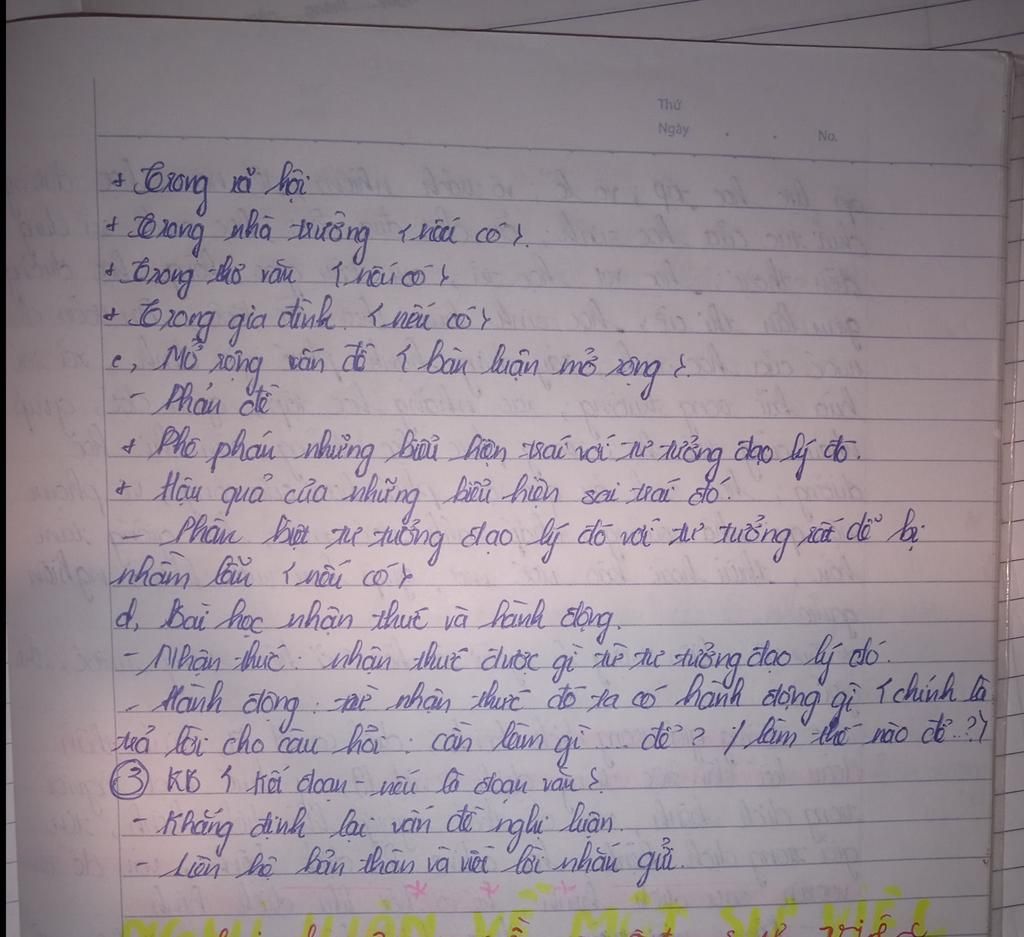 Thứ
Ngày . . No.
+ Trong xã hội
+ Trong nhà trường {nếu có}.
+ Trong thơ văn {nếu có}
+ Trong gia đình. {nếu có}
c, Mở rộng vấn đề {bàn luận mở rộng}.
- Phản đề
+ Phê phán những biểu hiện trái với tư tưởng đạo lý đó.
+ Hậu quả của những biểu hiện sai trái đó.
- Phân biệt tư tưởng đạo lý đó với tư tưởng rất dễ bị
nhầm lẫn {nếu có}
d, Bài học nhận thức và hành động.
- Nhận thức: nhận thức được gì từ tư tưởng đạo lý đó.
- Hành động: từ nhận thức đó ta có hành động gì {chính là
trả lời cho câu hỏi: cần làm gì để? / làm thế nào để..?}
③ KB {Kết đoạn nếu là đoạn văn}.
- Khẳng định lại vấn đề nghị luận.
- Liên hệ bản thân và với lời nhắn gửi.
NGHỊ LUẬN VỀ MỘT SỰ VIỆC